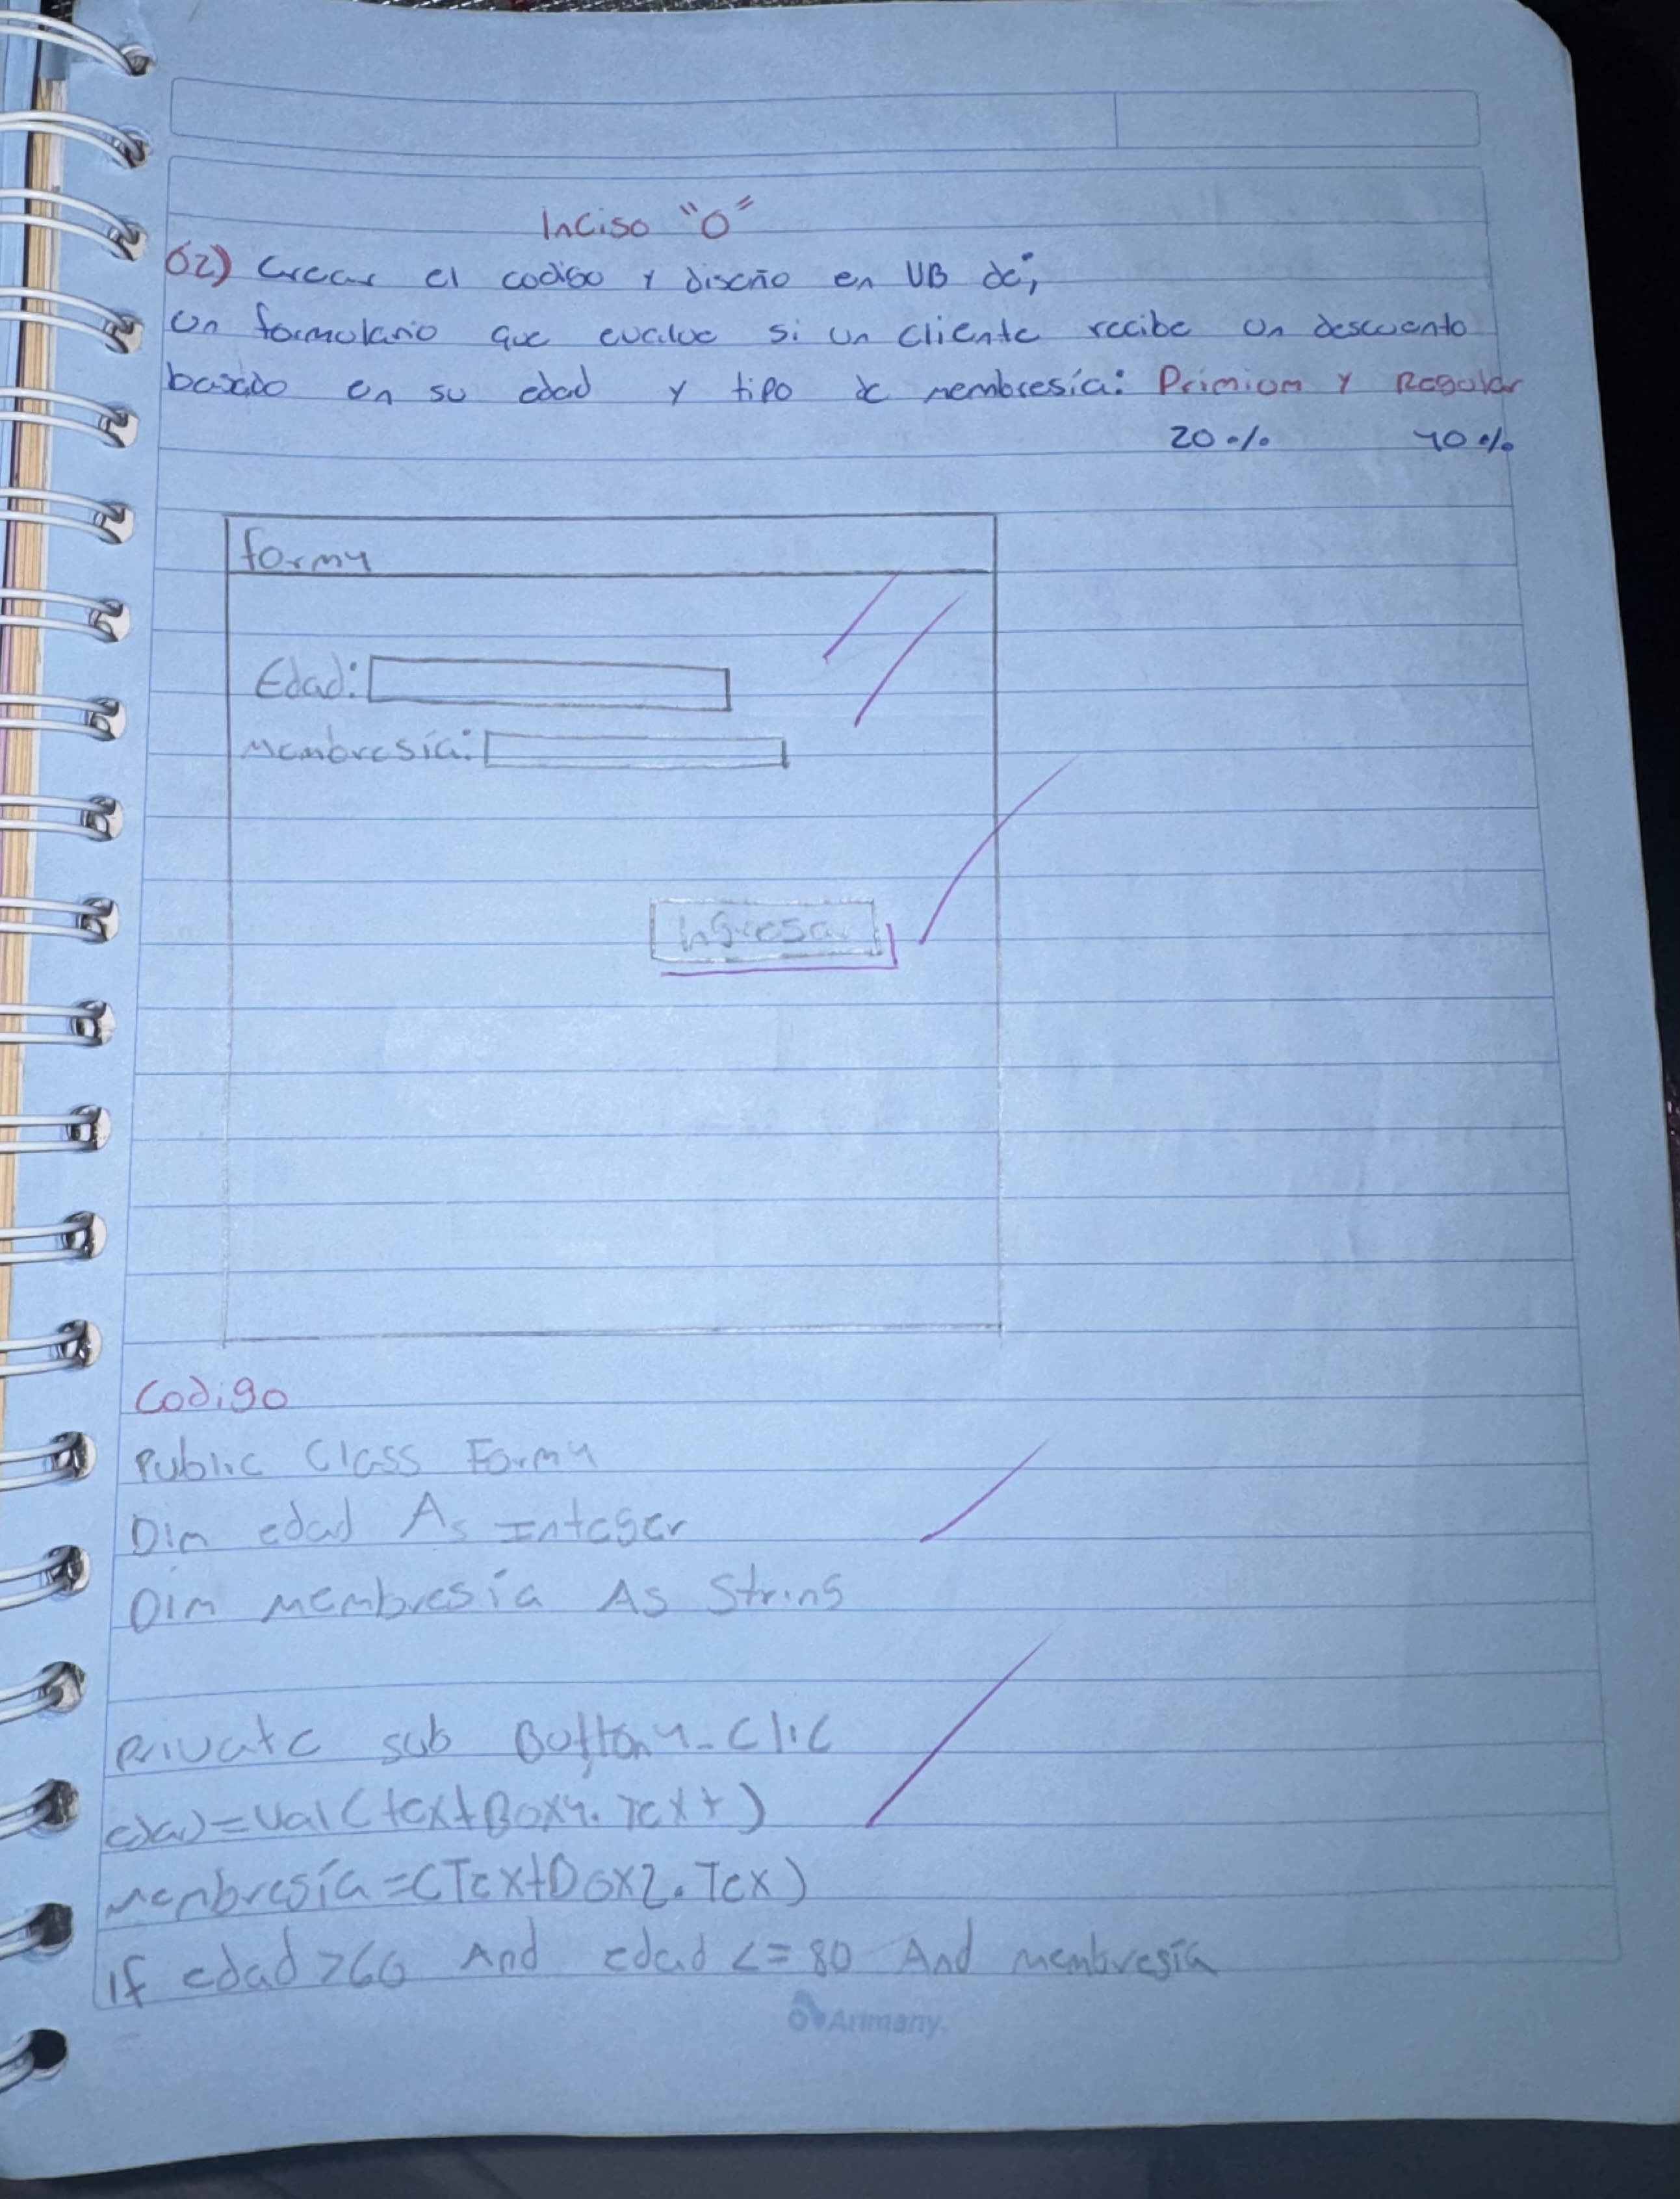 Inciso "O"
02) Crear el codigo y diseño en VB de;
Un formulario que evalue si un cliente recibe un descuento
basado en su edad y tipo de membresía: Primium y Regular
20% 10%
form1
Edad:
Membresía:
Ingresar
Codigo
Public Class Form1
Dim edad As Integer
Dim Membresía As String
Private sub Button1_Clic
edad=Val(textBox1.Text)
Membresía=(TextBox2.Tex)
If edad >60 And edad <=80 And membresía
Arimany.